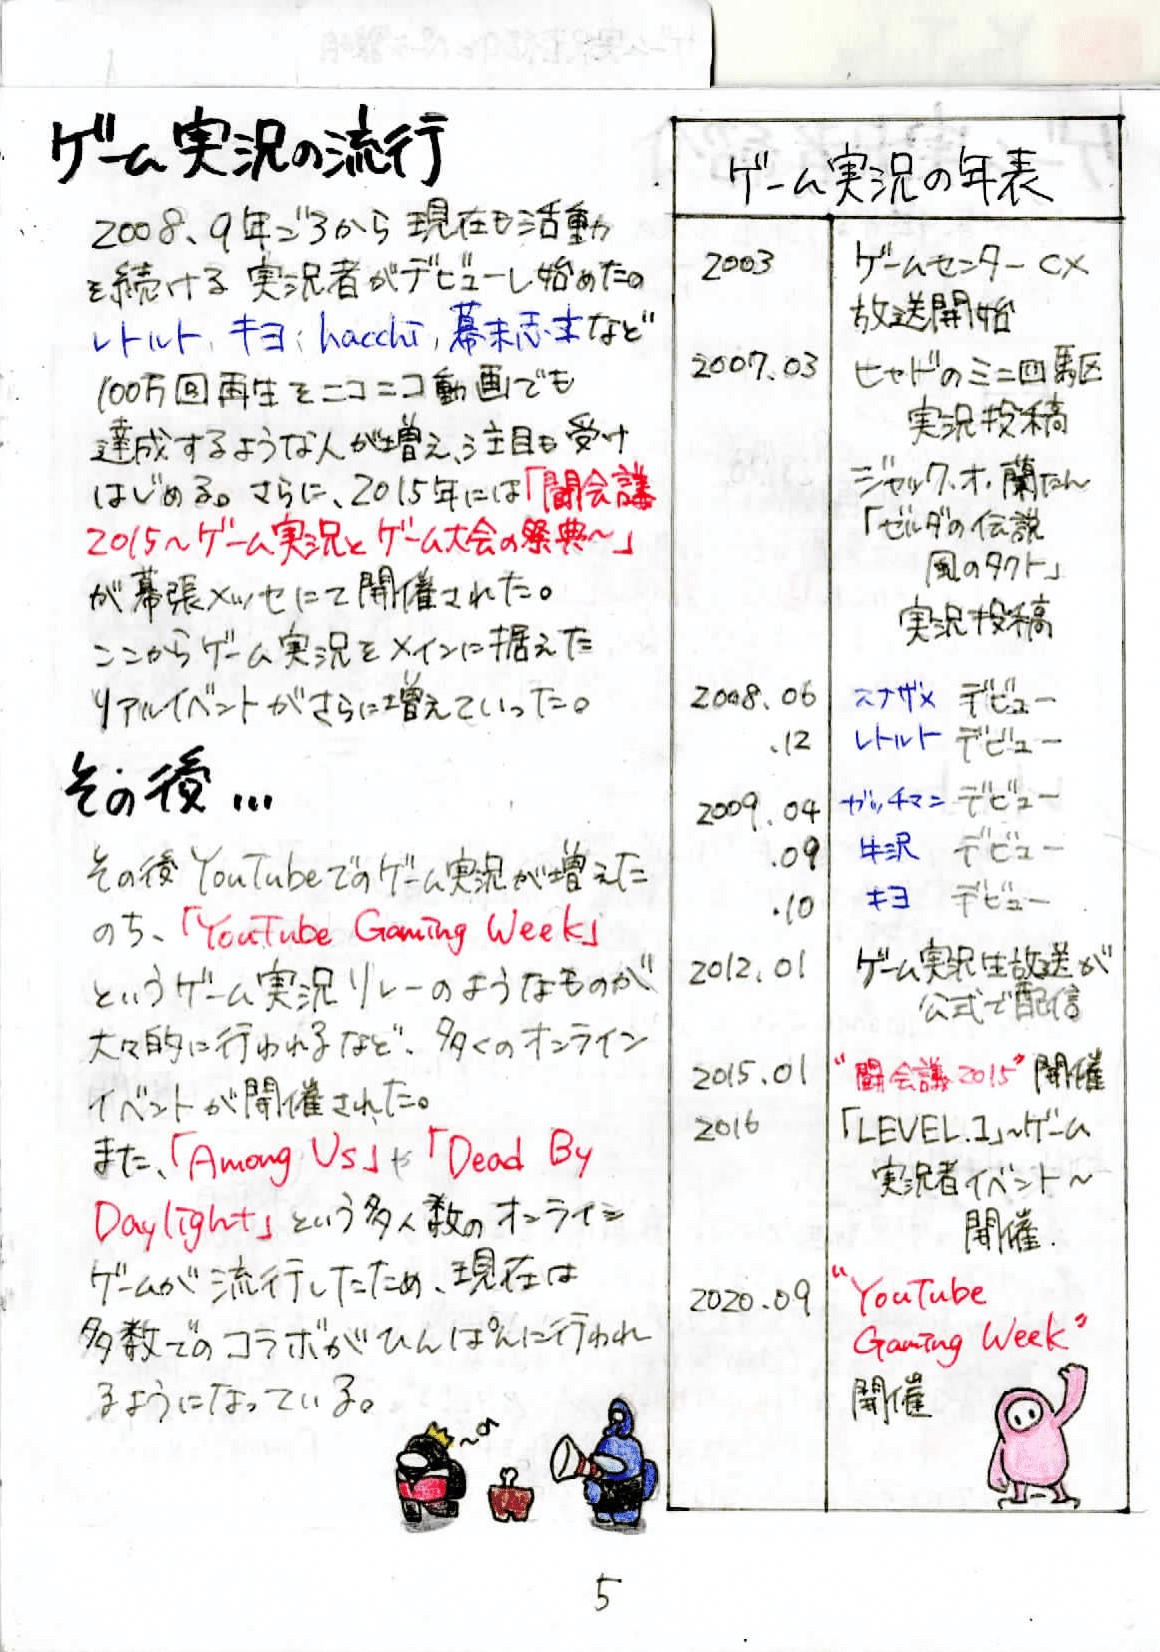 ゲーム実況の流行
2008、9年ごろから現在も活動
を続ける実況者がデビューし始めたの
レトルト、キヨ、hacchi、幕末志士など
100万回再生をニコニコ動画でも
達成するような人が増え、注目も受け
はじめる。さらに、2015年には「闘会議
2015〜ゲーム実況とゲーム大会の祭典〜」
が幕張メッセにて開催された。
ここからゲーム実況をメインに据えた
リアルイベントがさらに増えていった。
その後...
その後YouTubeでのゲーム実況が増えた
のち、「YouTube Gaming Week」
というゲーム実況リレーのようなものが
大々的に行われるなど、多くのオンライン
イベントが開催された。
また、「Among Us」や「Dead By
Daylight」という多人数のオンライン
ゲームが流行したため、現在は
多数でのコラボがひんぱんに行われ
るようになっている。
ゲーム実況の年表
2003 ゲームセンターCX
放送開始
2007.03 ヒャドのミニ四駆
実況投稿
ジャック・オ・蘭たん
「ゼルダの伝説
風のタクト」
実況投稿
2008.06 スナザメ デビュー
.12 レトルト デビュー
2009.04 ガッチマン デビュー
.09 牛沢 デビュー
.10 キヨ デビュー
2012.01 ゲーム実況生放送が
公式で配信
2015.01 "闘会議2015"開催
2016 「LEVEL.1」〜ゲーム
実況者イベント〜
開催.
2020.09 "YouTube
Gaming Week"
開催
5